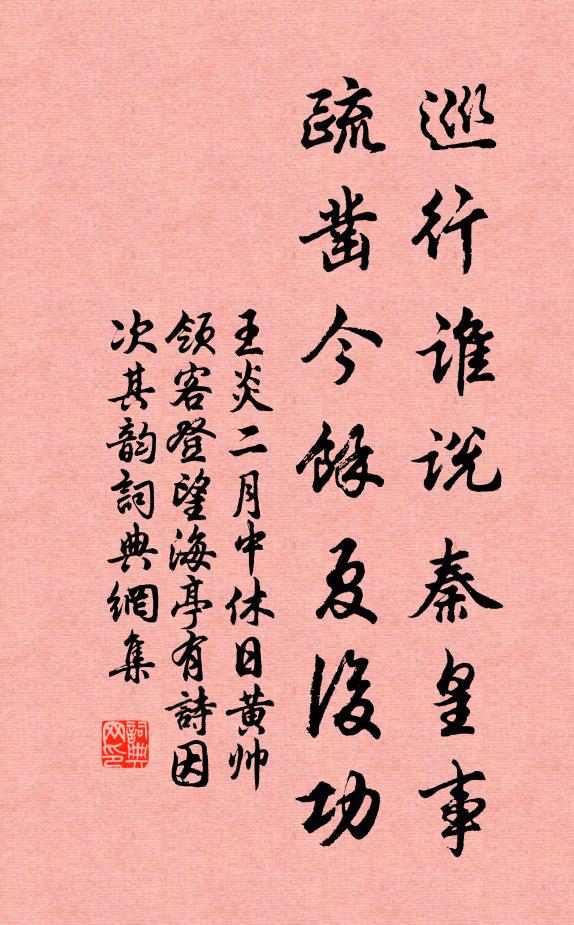 巡行谁说秦皇事
疏凿今餘夏後功
王炎二月中休日黄帅
领客登望海亭有詩因
次其韵詞典網集
詞典网印